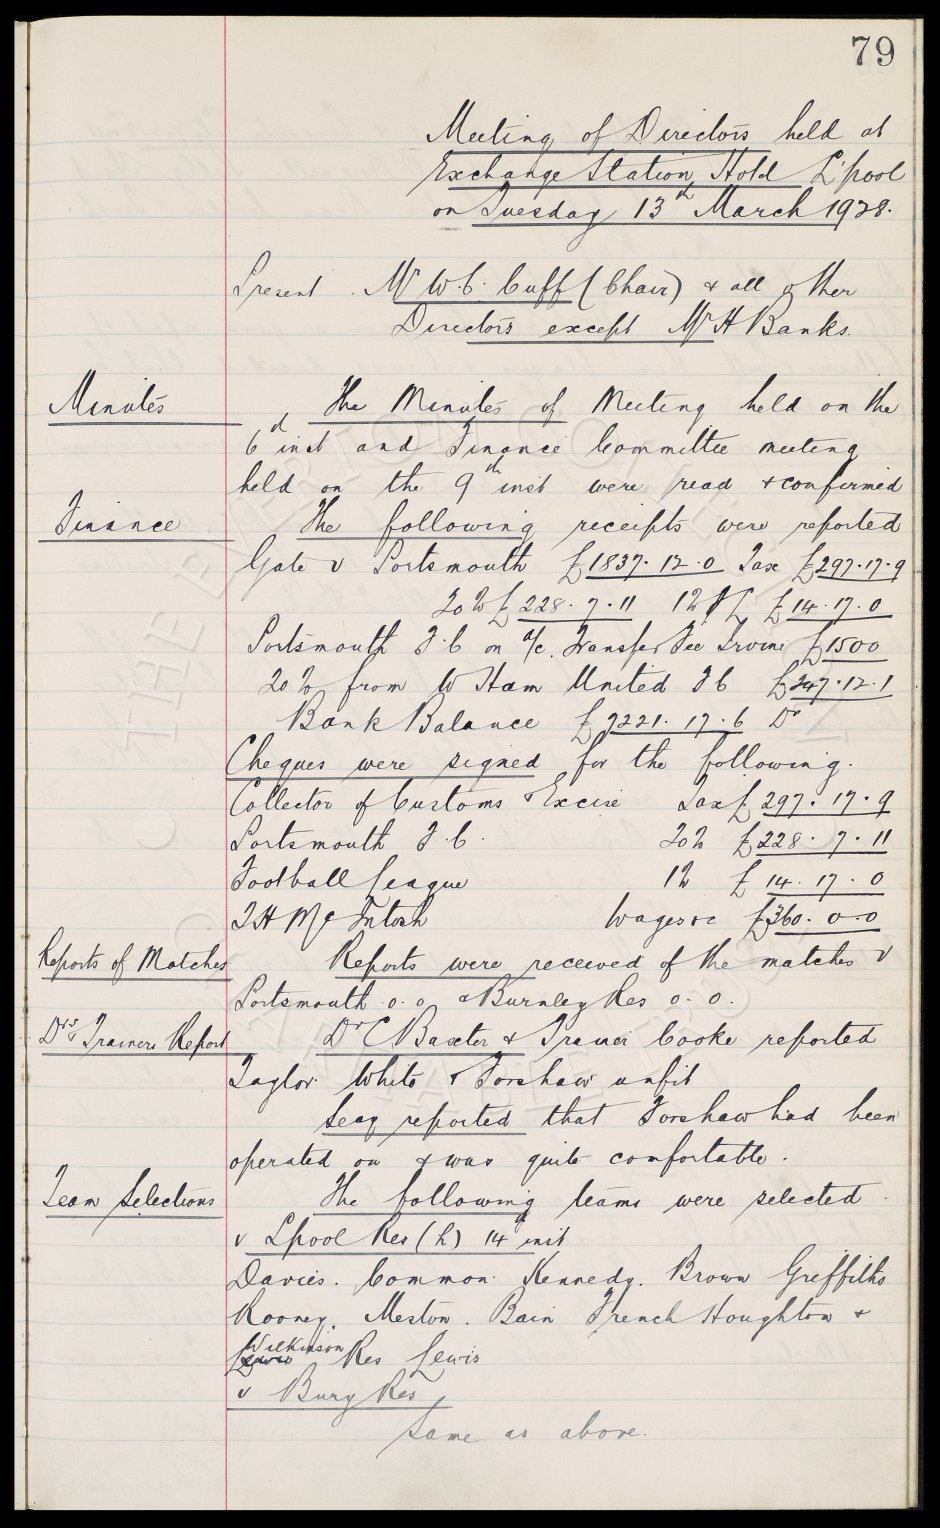 79
Meeting of Directors held at
Exchange Station Hotel L'pool
on Tuesday 13th March 1928.
Present. Mr W.C. Cuff (Chair) & all other
Directors except Mr H Banks.
Minutes
The Minutes of Meeting held on the
6th inst and Finance Committee meeting
held on the 9th inst were read & confirmed
Finance
The following receipts were reported
Gate v Portsmouth £1837. 12. 0 Tax £297. 17. 9
20% £228. 7. 11 1% FL £14. 17. 0
Portsmouth F.C on a/c. Transfer Fee Irvine £1500
20% from W Ham United FC £247. 12. 1
Bank Balance £7221. 17. 6 Dr
Cheques were signed for the following.
Collector of Customs & Excise Tax £297. 17. 9
Portsmouth F.C. 20% £228. 7. 11
Football League 1% £14. 17. 0
T H McIntosh Wages &c £360. 0. 0
Reports of Matches
Reports were received of the matches v
Portsmouth 0. 0 & Burnley Res 0. 0.
Drs & Trainers Report
Dr C Baxter & Trainer Cooke reported
Taylor White & Forshaw unfit
Secy reported that Forshaw had been
operated on & was quite comfortable.
Team Selections
The following teams were selected.
v Lpool Res (h) 14th inst
Davies. Common. Kennedy. Brown Griffiths
Rooney. Meston. Bain French Houghton &
Wilkinson
Lewis Res Lewis
v Bury Res
Same as above.